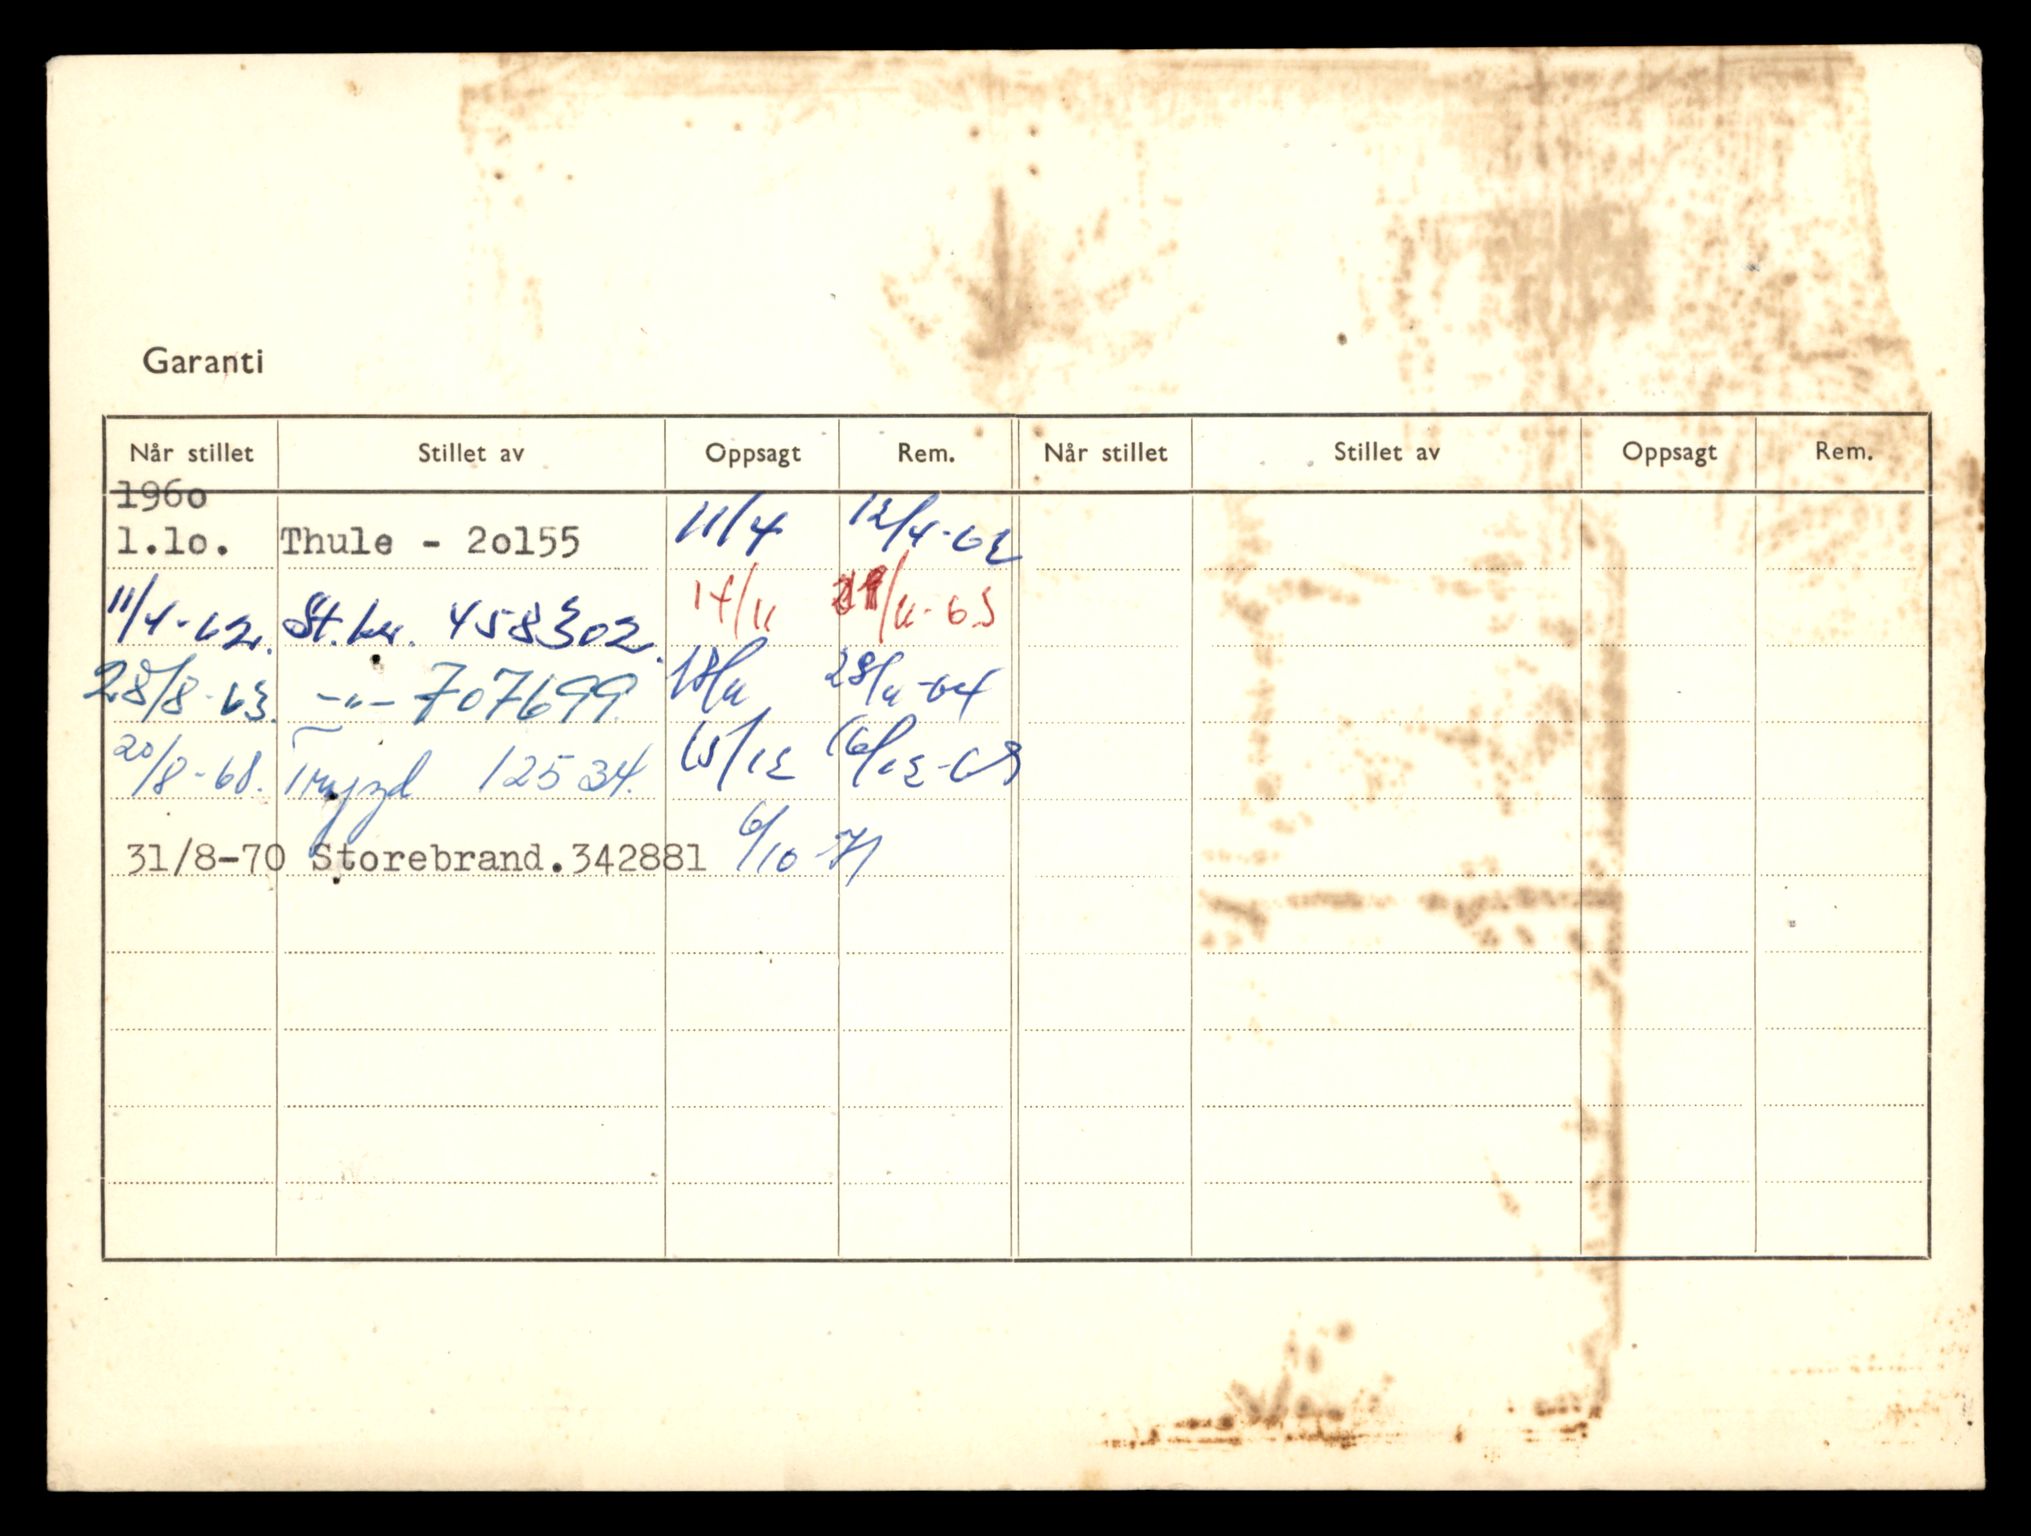 Garanti
Når stillet Stillet av Oppsagt Rem. Når stillet Stillet av Oppsagt Rem.
1960
1.1o. Thule - 2o155 11/4 12/4-62
11/4-62. St.br. 458302. 14/11 /11-63
28/8-63. -"- 707699. 18/11 28/11-64
20/8-68. Trygd 12534. 15/12 16/12-68
31/8-70 Storebrand.342881 6/10 71